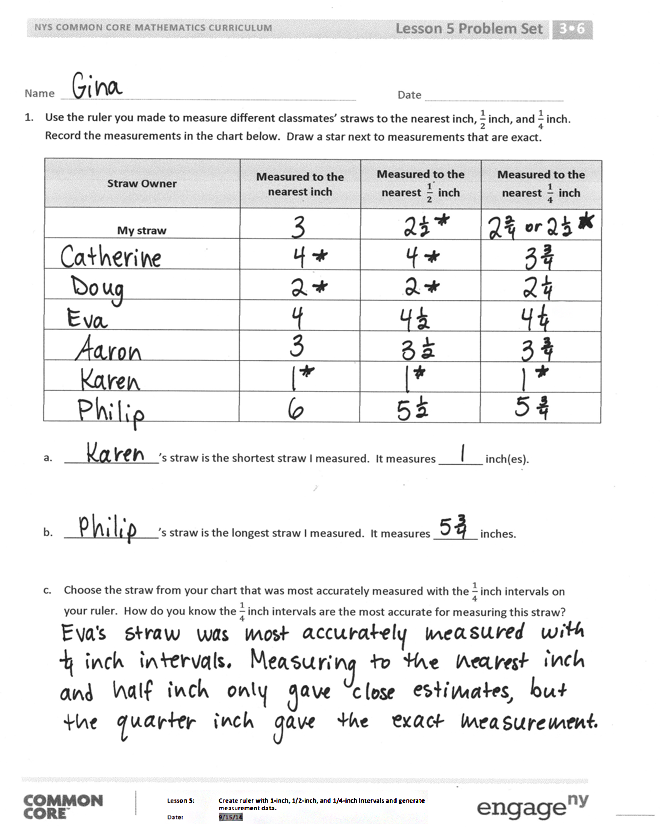 NYS COMMON CORE MATHEMATICS CURRICULUM Lesson 5 Problem Set 3•6
Name Gina Date
1. Use the ruler you made to measure different classmates' straws to the nearest inch, 1/2 inch, and 1/4 inch.
Record the measurements in the chart below. Draw a star next to measurements that are exact.
Straw Owner Measured to the nearest inch Measured to the nearest 1/2 inch Measured to the nearest 1/4 inch
My straw 3 2 1/2 * 2 2/4 or 2 1/2 *
Catherine 4 * 4 * 3 3/4
Doug 2 * 2 * 2 1/4
Eva 4 4 1/2 4 1/4
Aaron 3 3 1/2 3 3/4
Karen 1 * 1 * 1 *
Philip 6 5 1/2 5 3/4
a. Karen 's straw is the shortest straw I measured. It measures 1 inch(es).
b. Philip 's straw is the longest straw I measured. It measures 5 3/4 inches.
c. Choose the straw from your chart that was most accurately measured with the 1/4 inch intervals on
your ruler. How do you know the 1/4 inch intervals are the most accurate for measuring this straw?
Eva's straw was most accurately measured with
1/4 inch intervals. Measuring to the nearest inch
and half inch only gave close estimates, but
the quarter inch gave the exact measurement.
COMMON CORE™ Lesson 5: Create ruler with 1-inch, 1/2-inch, and 1/4-inch intervals and generate
measurement data.
Date: 9/15/14
engage ny